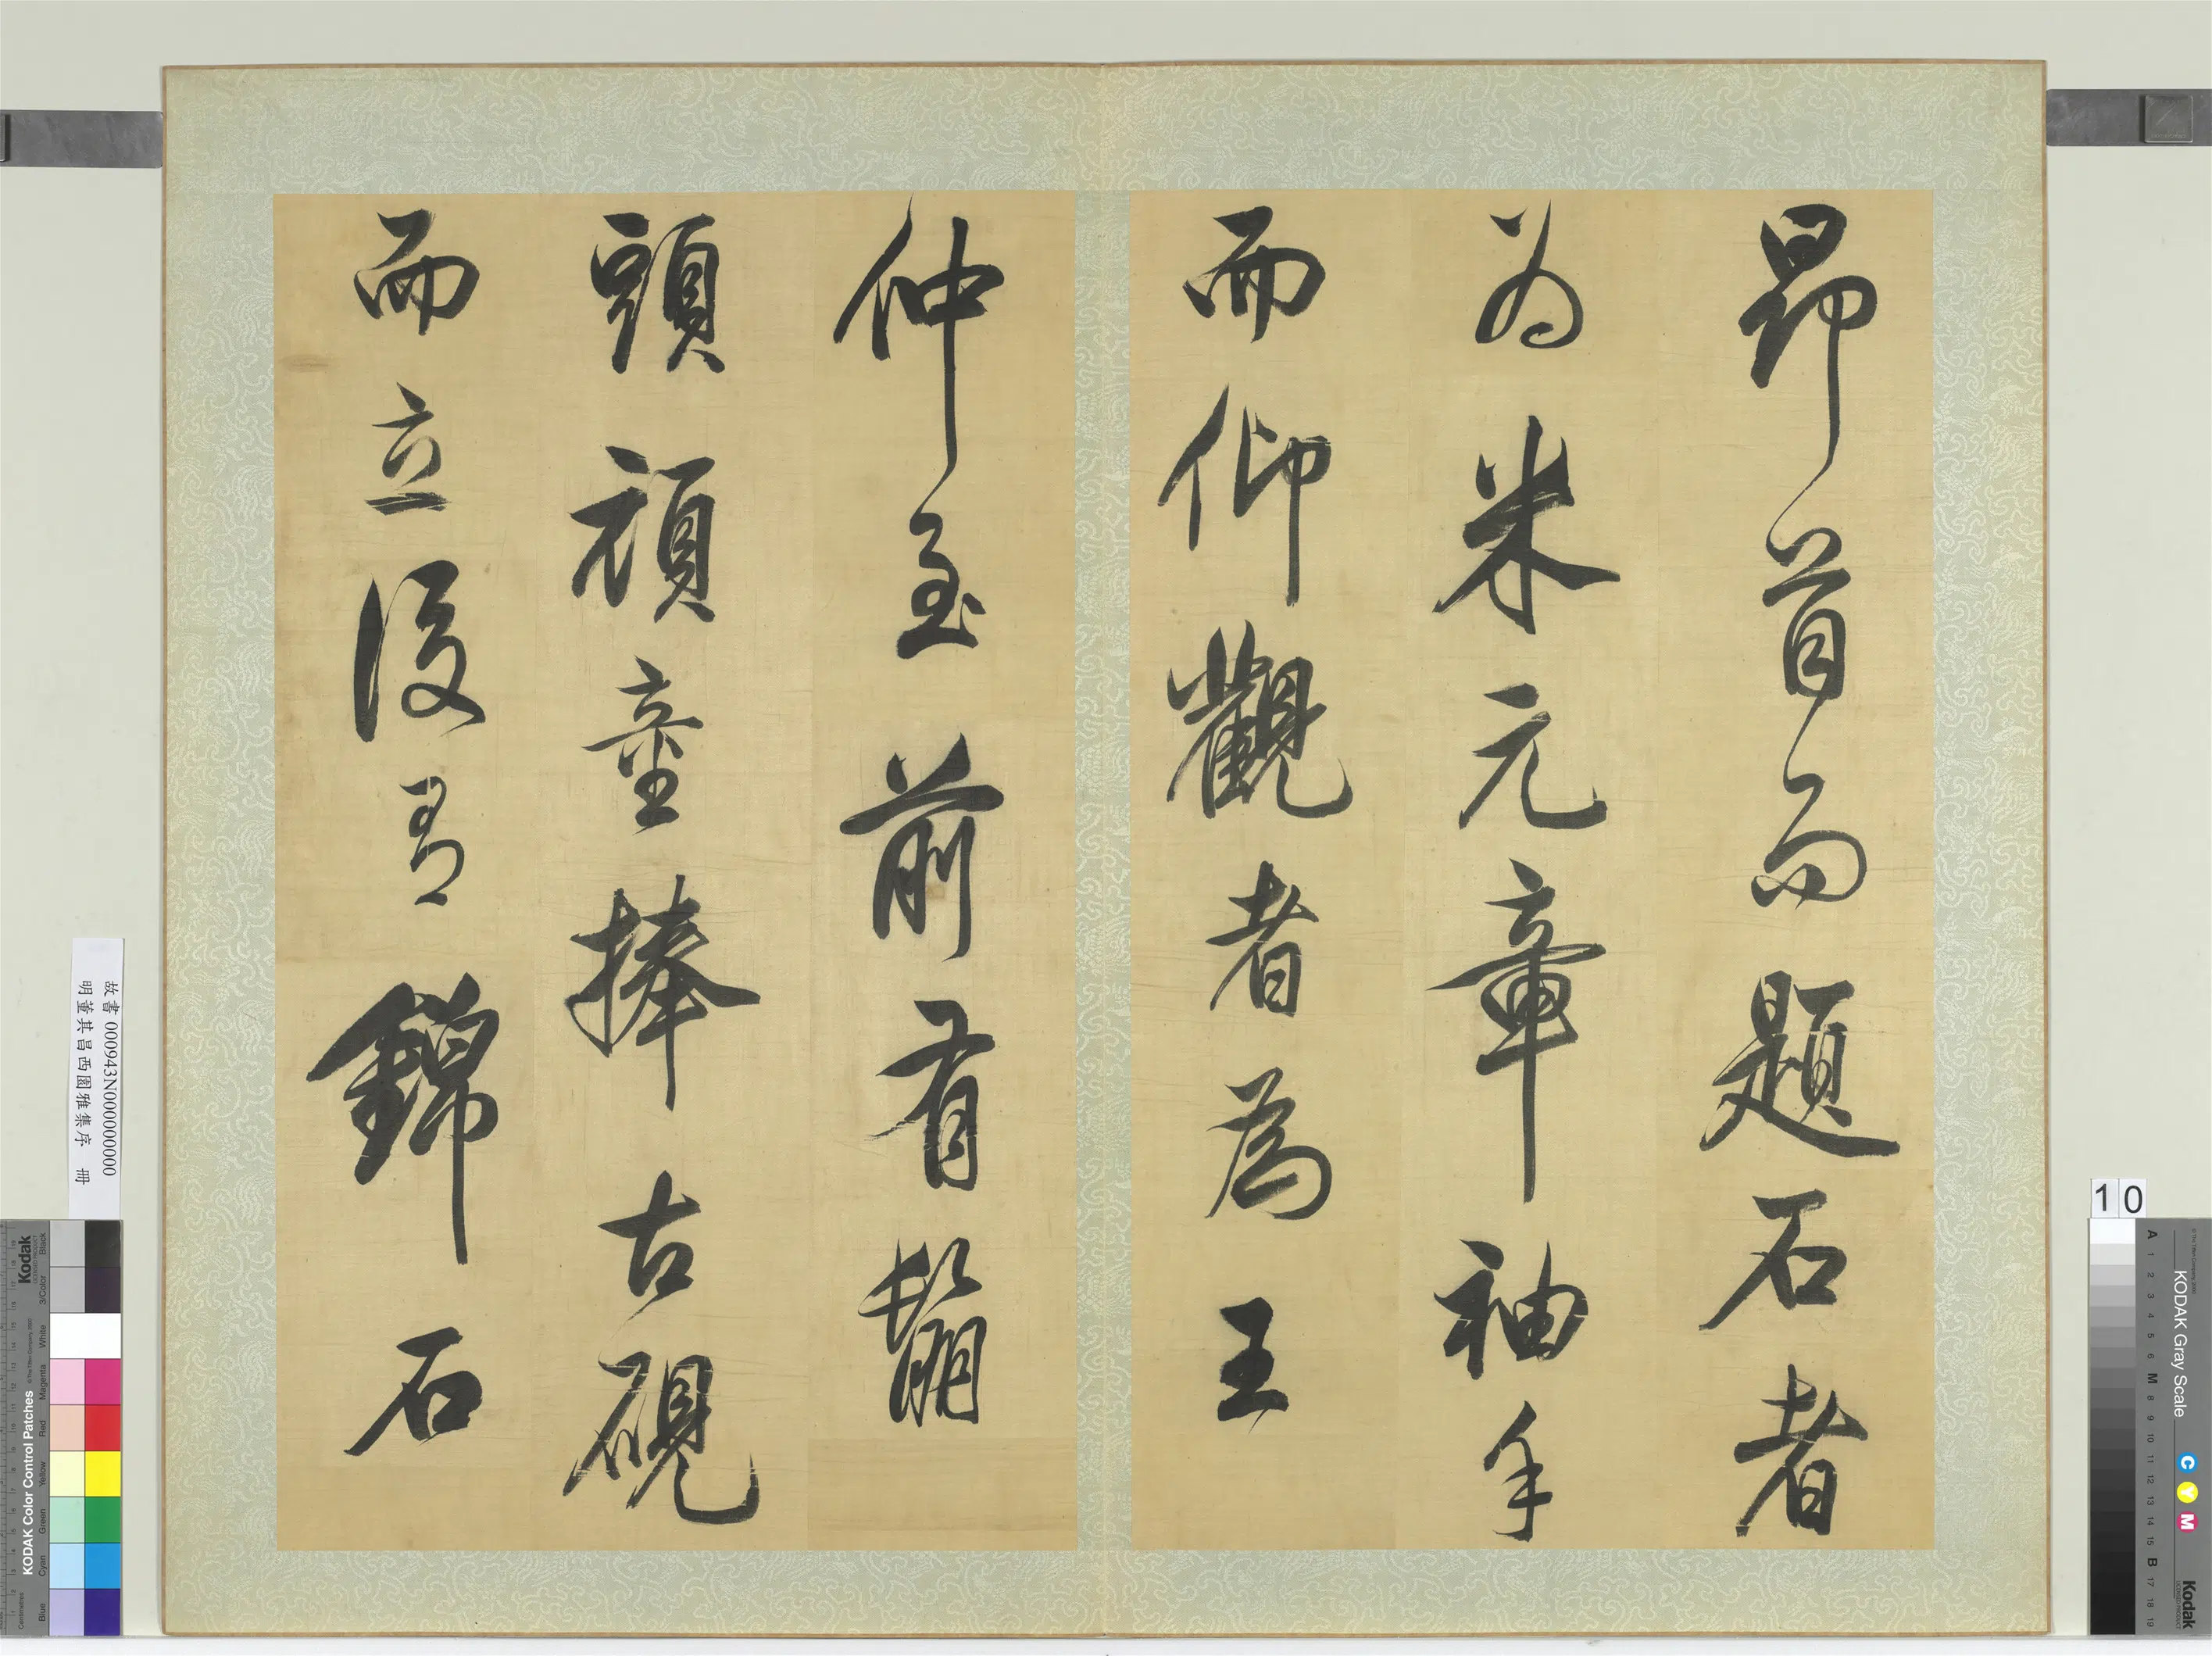 昂首而題石者
为米元章袖手
而仰觀者為王
仲至前有鬅
頭頑童捧古硯
而立後有錦石
故書 000943N000000000
明董其昌西園雅集序 冊
10
KODAK Gray Scale
C Y M
Kodak
A 1 2 3 4 5 6 M 8 9 10 11 12 13 14 15 B 17 18 19
Kodak
KODAK Color Control Patches
Blue Cyan Green Yellow Red Magenta White 3/Color Black
Centimetres